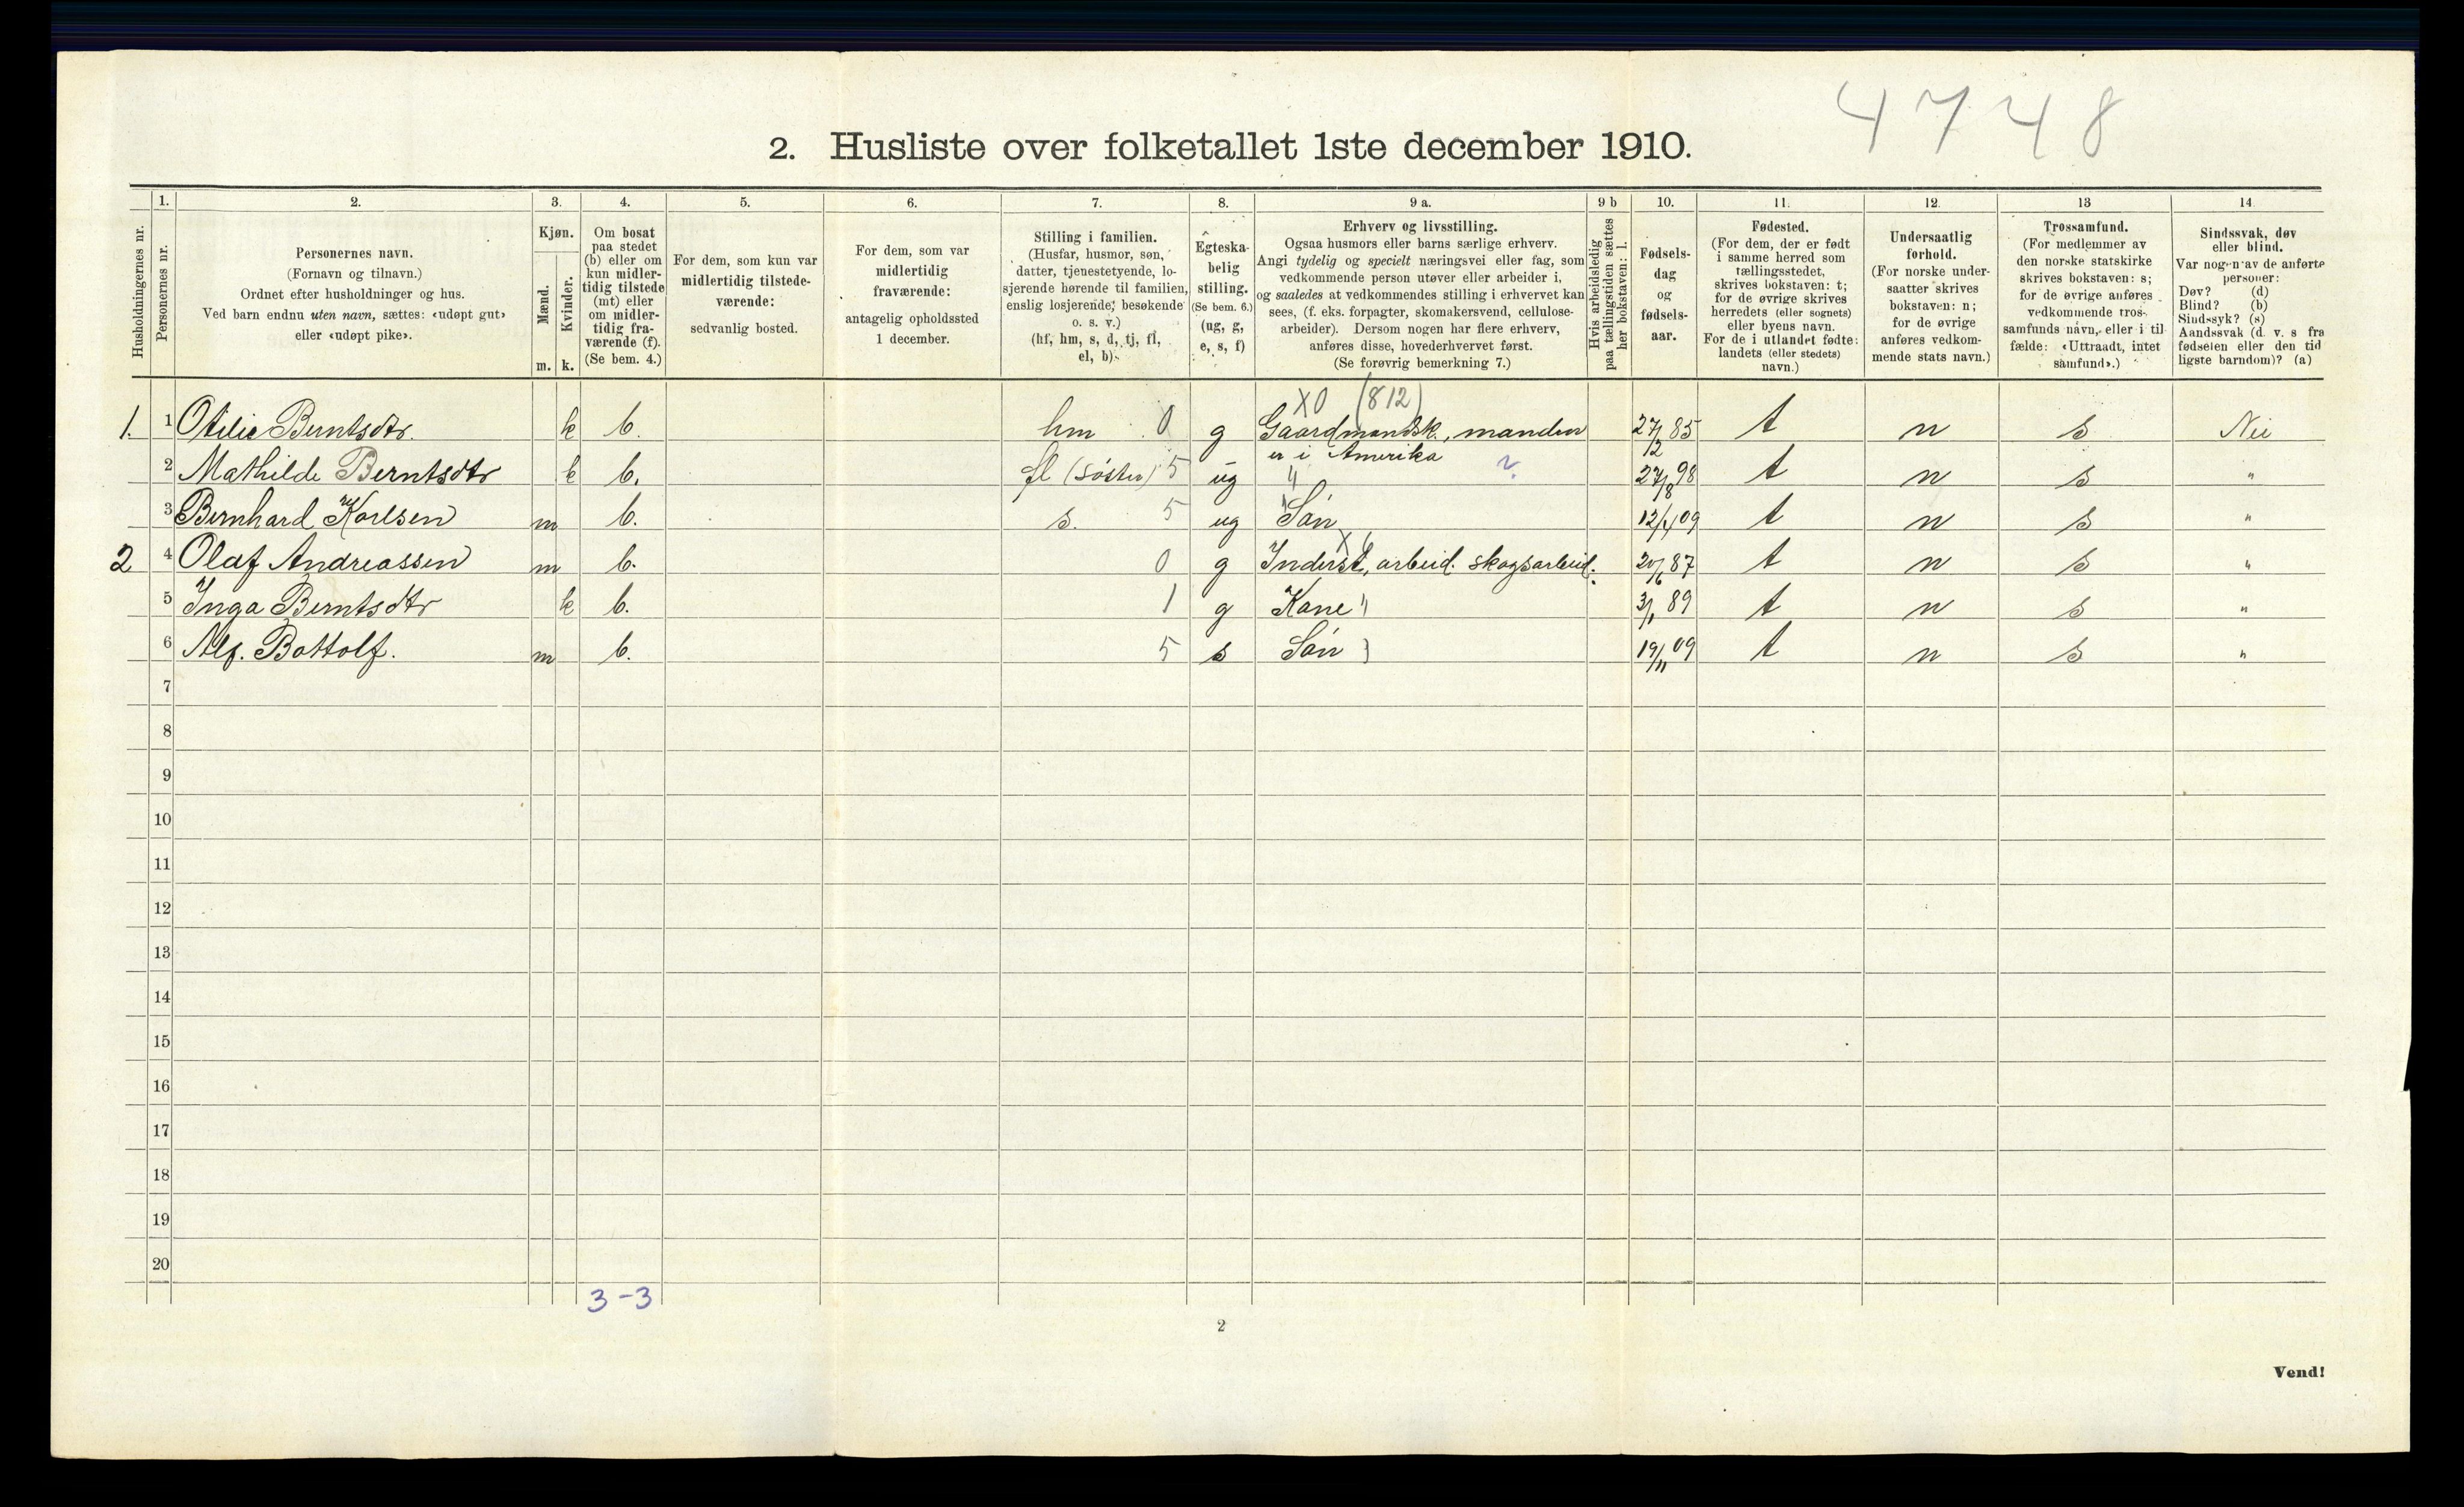 4748
2. Husliste over folketallet 1ste december 1910.
Husholdningernes nr.
1.
Personernes nr.
2.
Personernes navn.
(Fornavn og tilnavn.)
Ordnet efter husholdninger og hus.
Ved barn endnu uten navn, sættes: «udøpt gut»
eller «udøpt pike».
3.
Kjøn.
Mænd.
Kvinder.
m. k.
4.
Om bosat
paa stedet
(b) eller om
kun midler-
tidig tilstede
(mt) eller
om midler-
tidig fra-
værende (f).
(Se bem. 4.)
5.
For dem, som kun var
midlertidig tilstede-
værende:
sedvanlig bosted.
6.
For dem, som var
midlertidig
fraværende:
antagelig opholdssted
1 december.
7.
Stilling i familien.
(Husfar, husmor, søn,
datter, tjenestetyende, lo-
sjerende hørende til familien,
enslig losjerende, besøkende
o. s. v.)
(hf, hm, s, d, tj, fl,
el, b).
8.
Egteska-
belig
stilling.
(Se bem. 6.)
(ug, g,
e, s, f)
9 a.
Erhverv og livsstilling.
Ogsaa husmors eller barns særlige erhverv.
Angi tydelig og specielt næringsvei eller fag, som
vedkommende person utøver eller arbeider i,
og saaledes at vedkommendes stilling i erhvervet kan
sees, (f. eks. forpagter, skomakersvend, cellulose-
arbeider). Dersom nogen har flere erhverv,
anføres disse, hovederhvervet først.
(Se forøvrig bemerkning 7.)
9 b
Hvis arbeidsledig
paa tællingstiden sættes
her bokstaven: l.
10.
Fødsels-
dag
og
fødsels-
aar.
11.
Fødested.
(For dem, der er født
i samme herred som
tællingsstedet,
skrives bokstaven: t;
for de øvrige skrives
herredets (eller sognets)
eller byens navn.
For de i utlandet fødte:
landets (eller stedets)
navn.)
12.
Undersaatlig
forhold.
(For norske under-
saatter skrives
bokstaven: n;
for de øvrige
anføres vedkom-
mende stats navn.)
13
Trossamfund.
(For medlemmer av
den norske statskirke
skrives bokstaven: s;
for de øvrige anføres
vedkommende tros-
samfunds navn, eller i til-
fælde: «Uttraadt, intet
samfund».)
14
Sindssvak, døv
eller blind.
Var nogen av de anførte
personer:
Døv? (d)
Blind? (b)
Sindssyk? (s)
Aandssvak (d. v. s. fra
fødselen eller den tid
ligste barndom)? (a)
X0 (812)
1. 1 Otilie Berntsdtr. k b. hm 0 g Gaardmandsk., manden 27/12 85 t n s Nei
er i Amerika
2 Mathilde Berntsdtr k b. fl (søster) 5 ug " ? 27/8 98 t n s "
3 Bernhard Karlsen m b. s. 5 ug Søn 12/1 09 t n s "
2 4 Olaf Andreassen m b. 0 g Inderst, arbeid. skogsarbeid. 20/6 87 t n s "
5 Inga Berntsdtr k b. 1 g Kone " 3/1 89 t n s "
6 Alf. Bottolf. m b. 5 s Søn 19/11 09 t n s "
7
8
9
10
11
12
13
14
15
16
17
18
19
20
3-3
2
Vend!